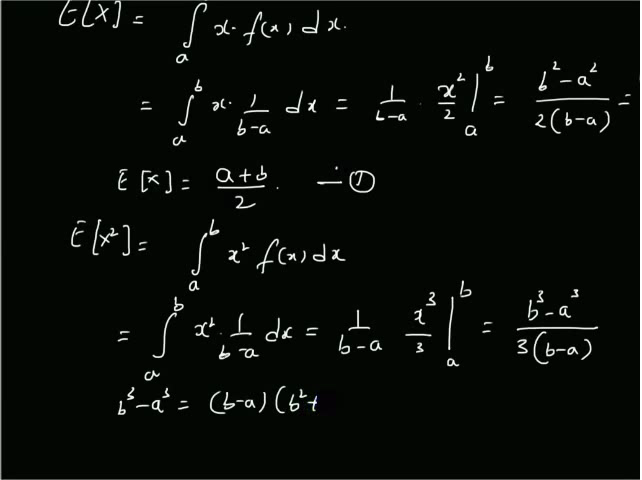 E[X] = ∫_a x · f(x) dx.
= ∫_a^b x · 1/(b-a) dx = 1/(b-a) · x²/2 |_a^b = (b² - a²)/(2(b-a)) =
E[X] = (a+b)/2 . — ①
E[X²] = ∫_a^b x² f(x) dx
= ∫_a^b x² · 1/(b-a) dx = 1/(b-a) x³/3 |_a^b = (b³ - a³)/(3(b-a))
b³ - a³ = (b-a) (b² +